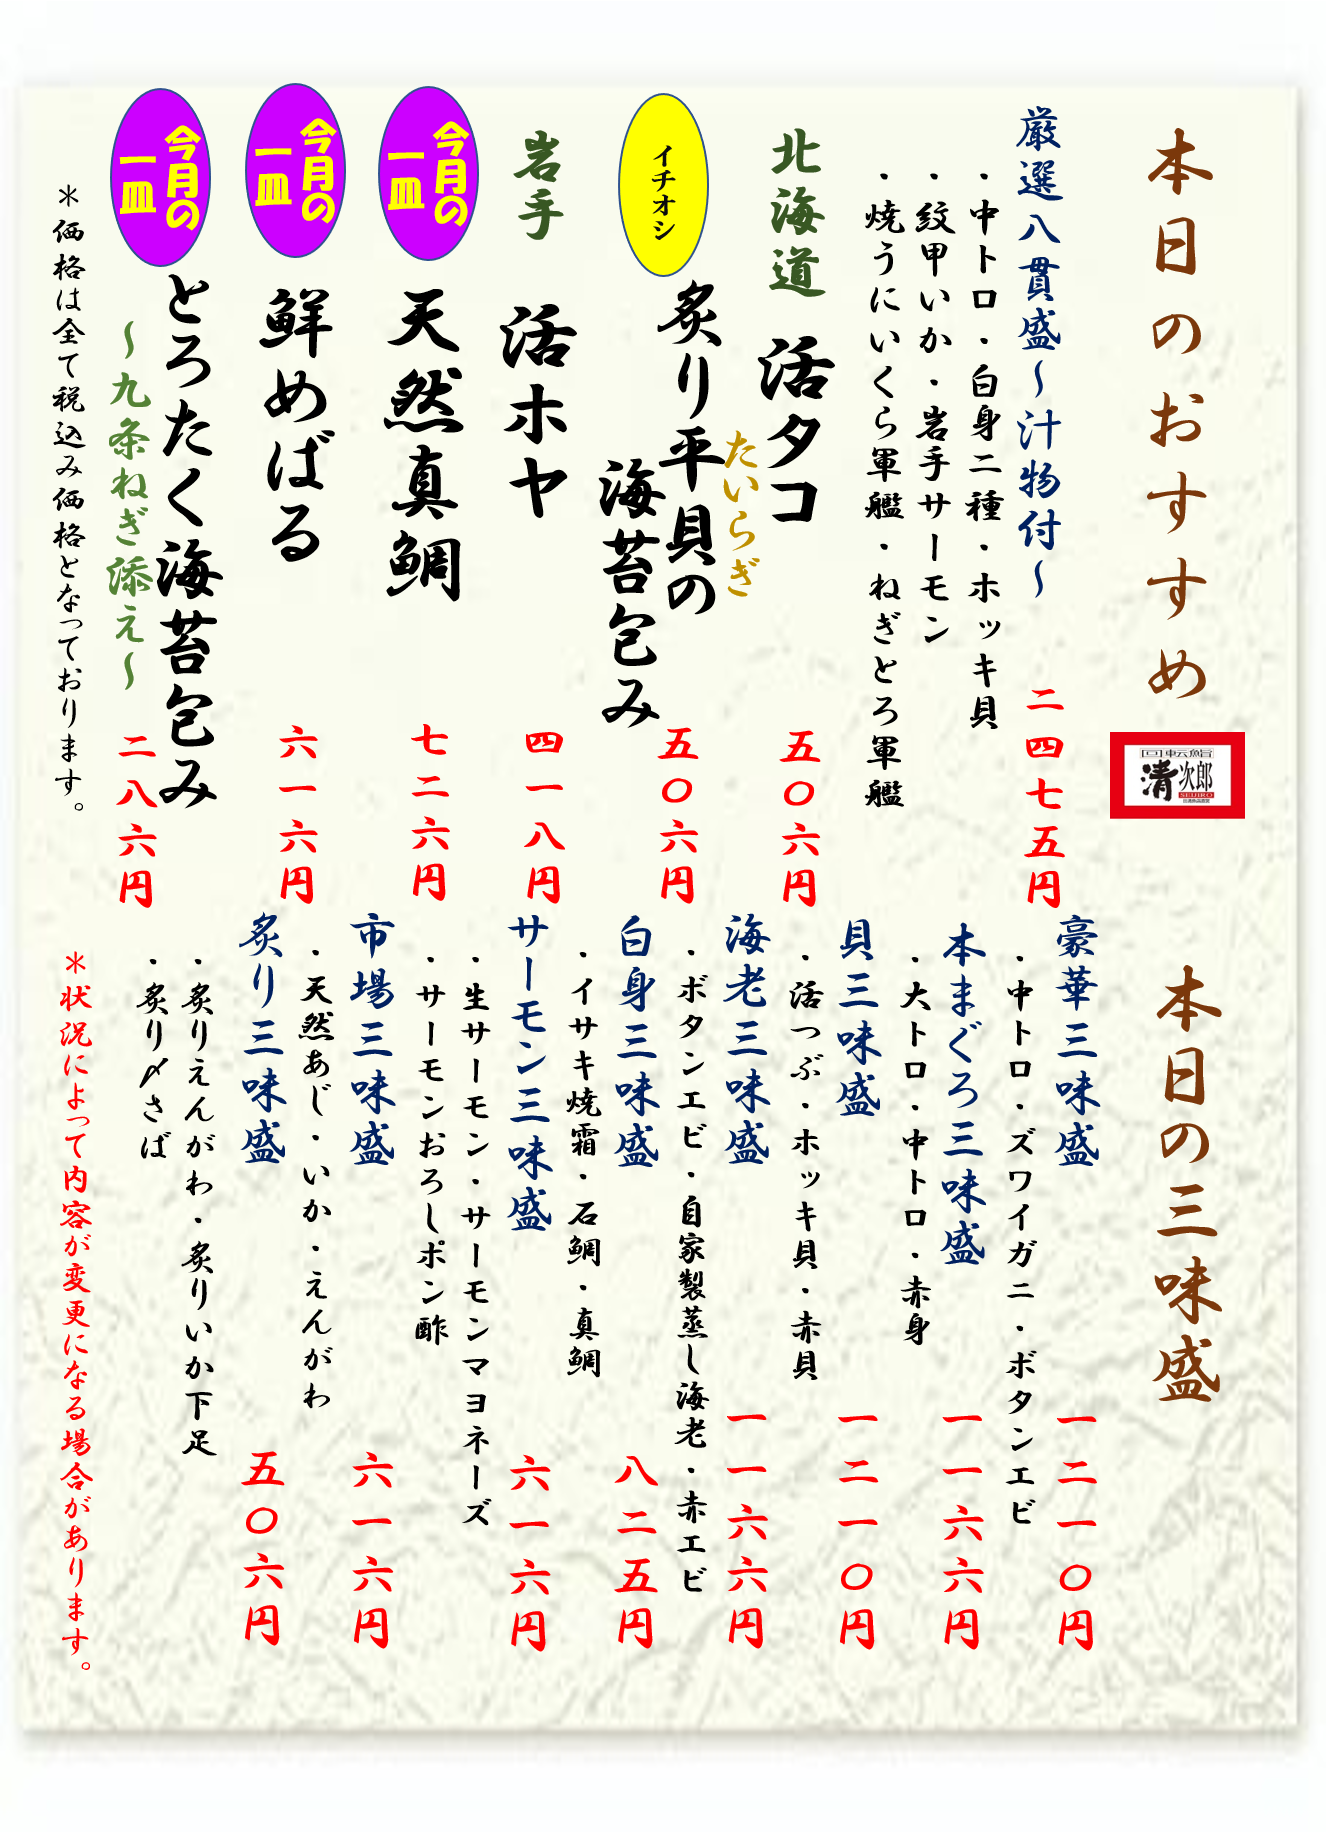 本日のおすすめ
回転鮨
清次郎
SEIJIRO
厳選八貫盛～汁物付～
二四七五円
・中トロ・白身二種・ホッキ貝
・紋甲いか・岩手サーモン
・焼うにいくら軍艦・ねぎとろ軍艦
北海道 活タコ
五〇六円
イチオシ
たいらぎ
炙り平貝の
海苔包み
五〇六円
岩手 活ホヤ
四一八円
今月の
一皿
天然真鯛
七二六円
今月の
一皿
鮮めばる
六一六円
今月の
一皿
とろたく海苔包み
～九条ねぎ添え～
二八六円
＊価格は全て税込み価格となっております。
本日の三味盛
豪華三味盛
一二一〇円
・中トロ・ズワイガニ・ボタンエビ
本まぐろ三味盛
一一六六円
・大トロ・中トロ・赤身
貝三味盛
一二一〇円
・活つぶ・ホッキ貝・赤貝
海老三味盛
一一六六円
・ボタンエビ・自家製蒸し海老・赤エビ
白身三味盛
八二五円
・イサキ焼霜・石鯛・真鯛
サーモン三味盛
六一六円
・生サーモン・サーモンマヨネーズ
・サーモンおろしポン酢
市場三味盛
六一六円
・天然あじ・いか・えんがわ
炙り三味盛
五〇六円
・炙りえんがわ・炙りいか下足
・炙り〆さば
＊状況によって内容が変更になる場合があります。